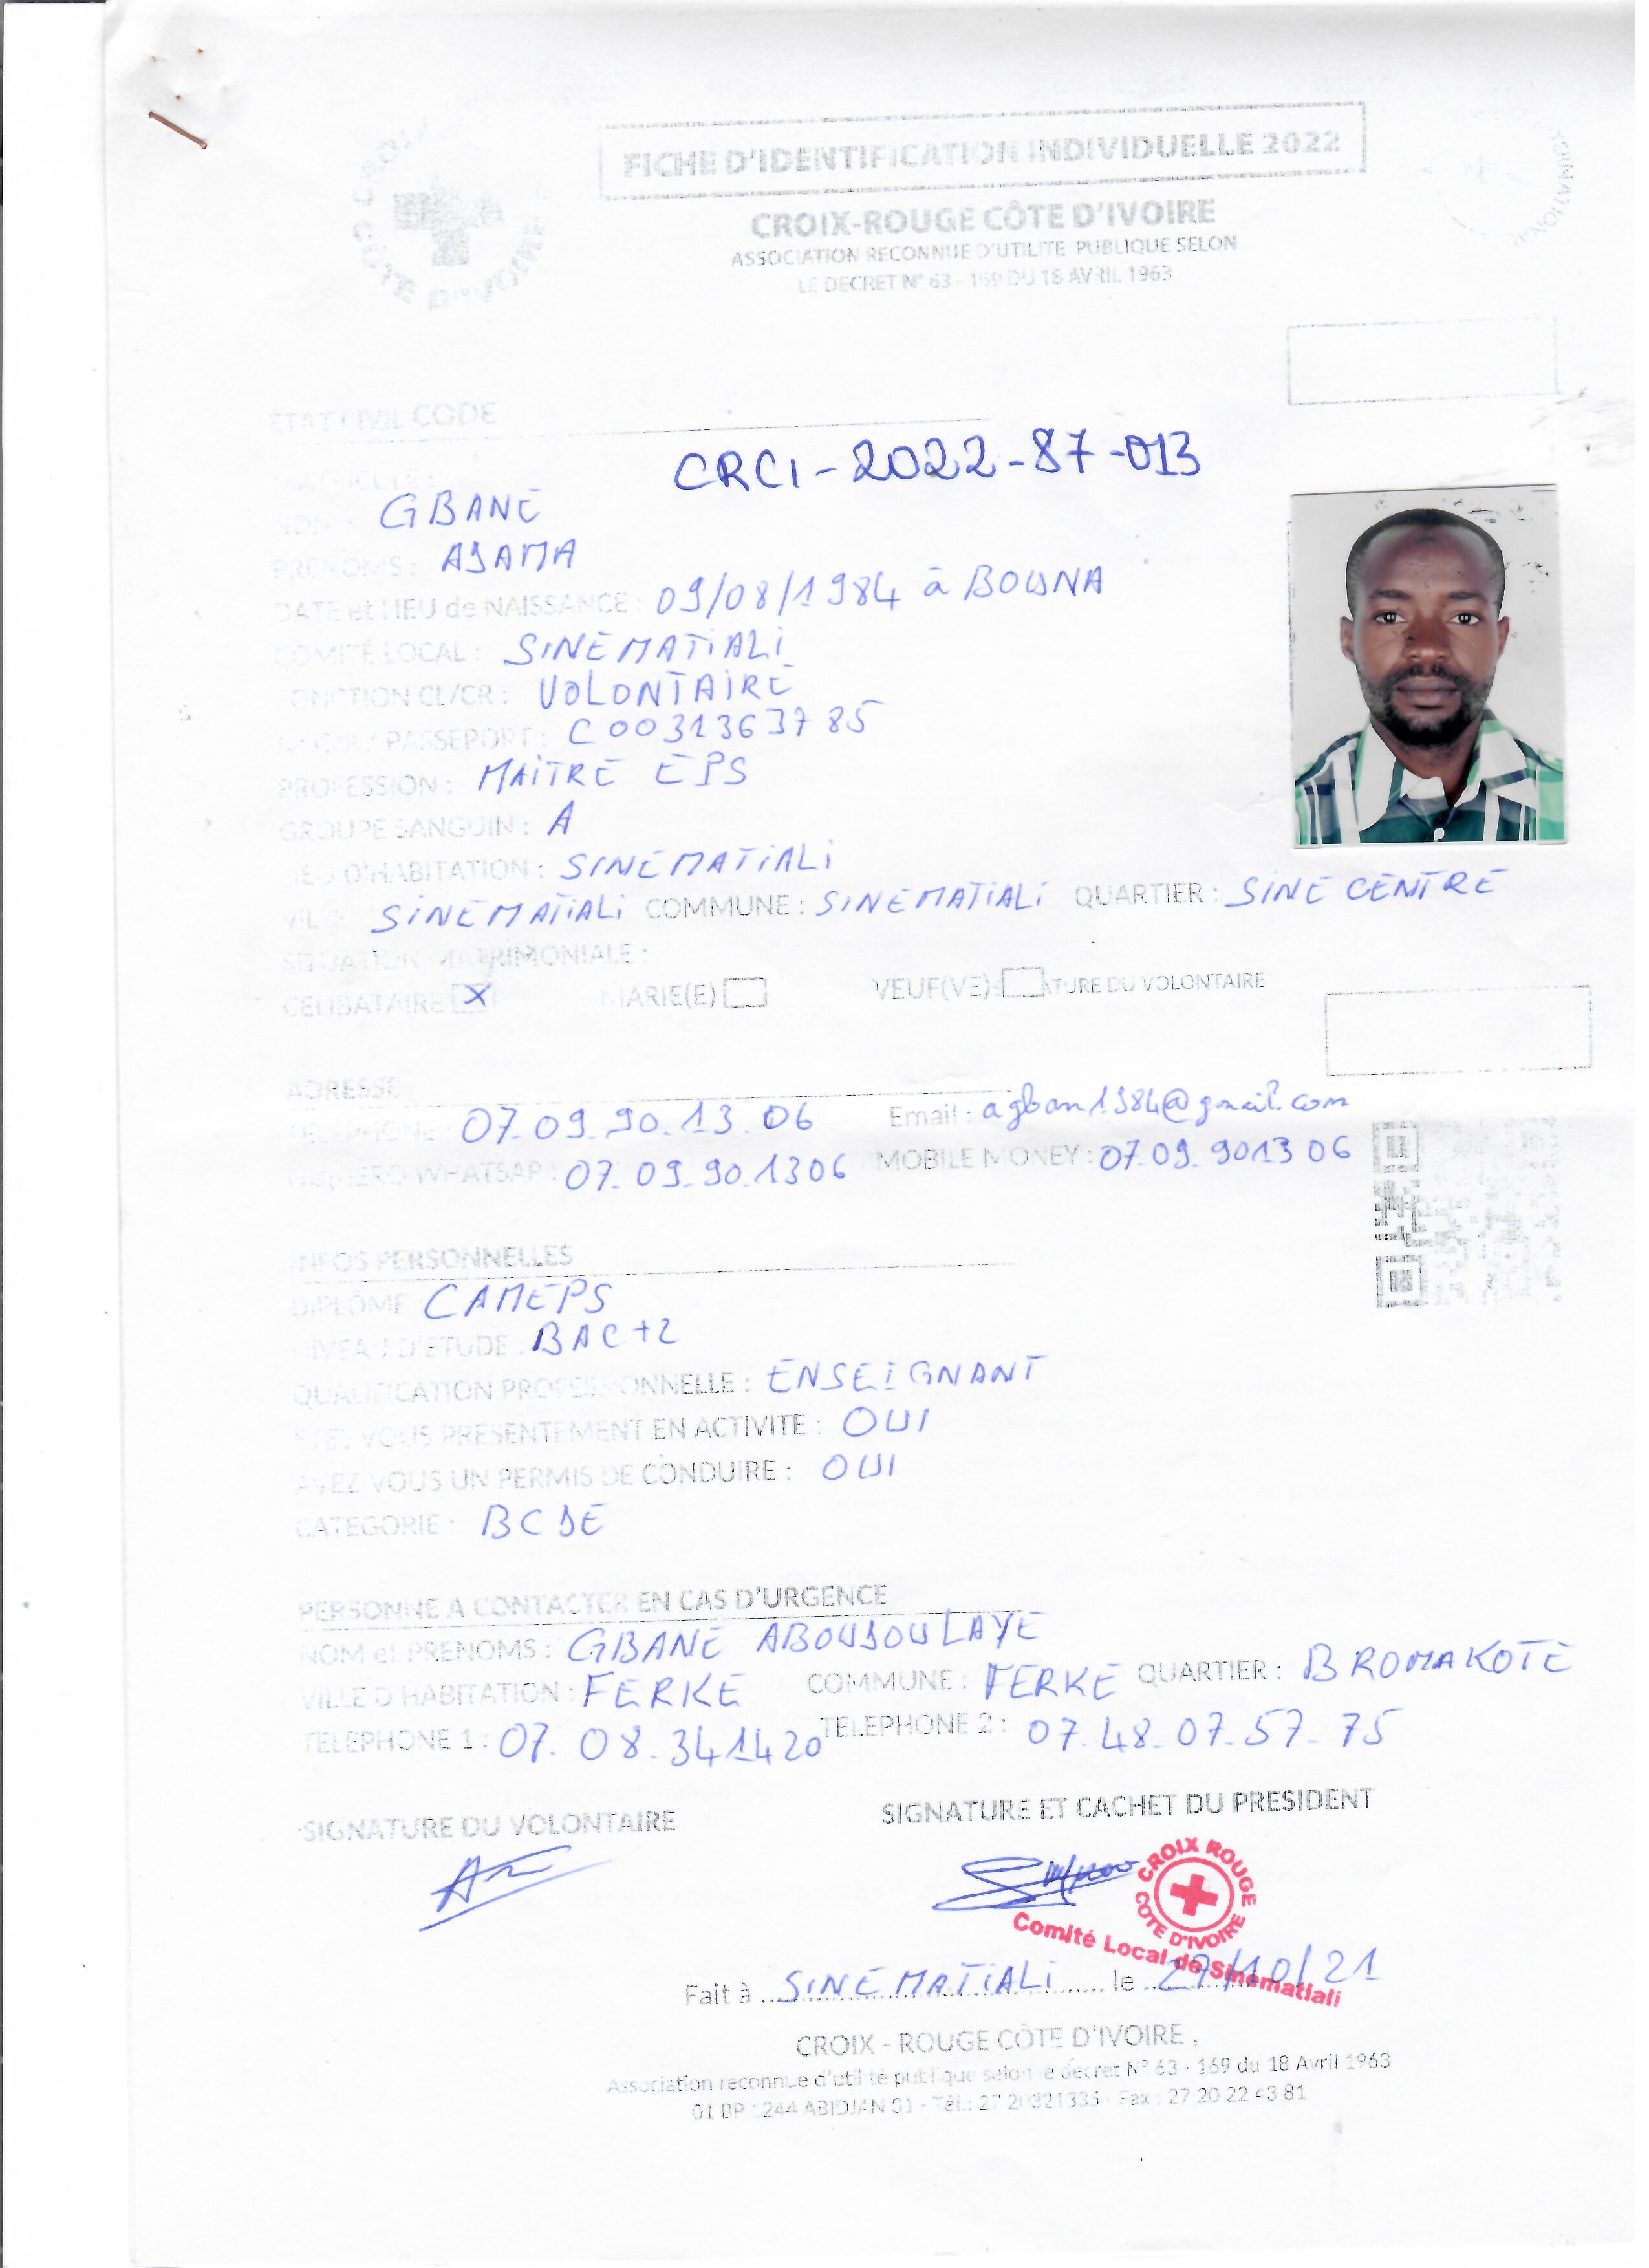 FICHE D'IDENTIFICATION INDIVIDUELLE 2022
CROIX-ROUGE CÔTE D'IVOIRE
ASSOCIATION RECONNUE D'UTILITE PUBLIQUE SELON
LE DECRET N° 63 - 169 DU 18 AVRIL 1963
ETAT CIVIL CODE
MATRICULE : CRCI-2022-87-013
NOM : GBANE
PRENOMS : ADAMA
DATE et LIEU de NAISSANCE : 09/08/1984 à BOUNA
COMITÉ LOCAL : SINEMATIALI
FONCTION CL/CR : VOLONTAIRE
PASSEPORT : C 0031363785
PROFESSION : MAITRE EPS
GROUPE SANGUIN : A
LIEU D'HABITATION : SINEMATIALI
VILLE SINEMATIALI COMMUNE : SINEMATIALI QUARTIER : SINE CENTRE
SITUATION MATRIMONIALE :
CELIBATAIRE X MARIE(E) VEUF(VE) ATURE DU VOLONTAIRE
ADRESSE
TELEPHONE : 07.09.90.13.06 Email : agban1984@gmail.com
NUMERO WHATSAP : 07.09.90.1306 MOBILE MONEY : 07.09.9013 06
INFOS PERSONNELLES
DIPLOME CAMEPS
NIVEAU D'ETUDE : BAC+2
QUALIFICATION PROFESSIONNELLE : ENSEIGNANT
ETES VOUS PRESENTEMENT EN ACTIVITE : OUI
AVEZ VOUS UN PERMIS DE CONDUIRE : OUI
CATEGORIE - BCDE
PERSONNE A CONTACTER EN CAS D'URGENCE
NOM et PRENOMS : GBANE ABOUDOULAYE
VILLE D'HABITATION : FERKE COMMUNE : FERKE QUARTIER : BROMAKOTE
TELEPHONE 1 : 07.08.341420 TELEPHONE 2 : 07.48.07.57.75
SIGNATURE DU VOLONTAIRE SIGNATURE ET CACHET DU PRESIDENT
CROIX ROUGE
COTE D'IVOIRE
Comité Local de Sinematiali
Fait à SINEMATIALI le 27/10/21
CROIX - ROUGE CÔTE D'IVOIRE ,
Association reconnue d'utilité publique selon le décret N° 63 - 169 du 18 Avril 1963
01 BP 1244 ABIDJAN 01 - Tél.: 27 20321335 - Fax : 27 20 22 43 81